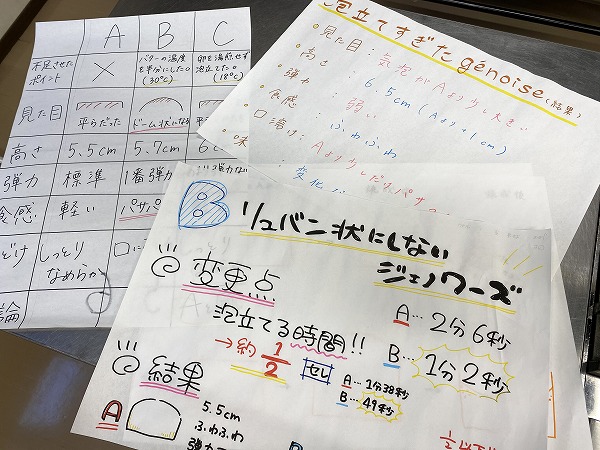 A B C
不足させたポイント
×
バターの温度を半分にした。(30℃)
卵を湯煎せず泡立てた。(18℃)
見た目
平らだった
ドーム状になる
平
高さ 5.5cm 5.7cm 6
弾力 標準 1番弾力
食感 軽い パサパ
どけ しっとりなめらか 口に
論)
泡立てすぎたgénoise(結果)
・見た目:気泡がAより少し大きい
・高さ : 6.5cm (Aより+1cm)
・弾力 : 弱い
・食感 : ふわふわ
・口溶け: Aより少しパサつ
・味 : 変化
B リュバン状にしない
ジェノワーズ
変更点
泡立てる時間!!
→約1/2
セレ
A…2分6秒
B…1分2秒
A…1分38秒
B…49秒
結果
A
5.5cm
ふわふわ
弾力
1/2以